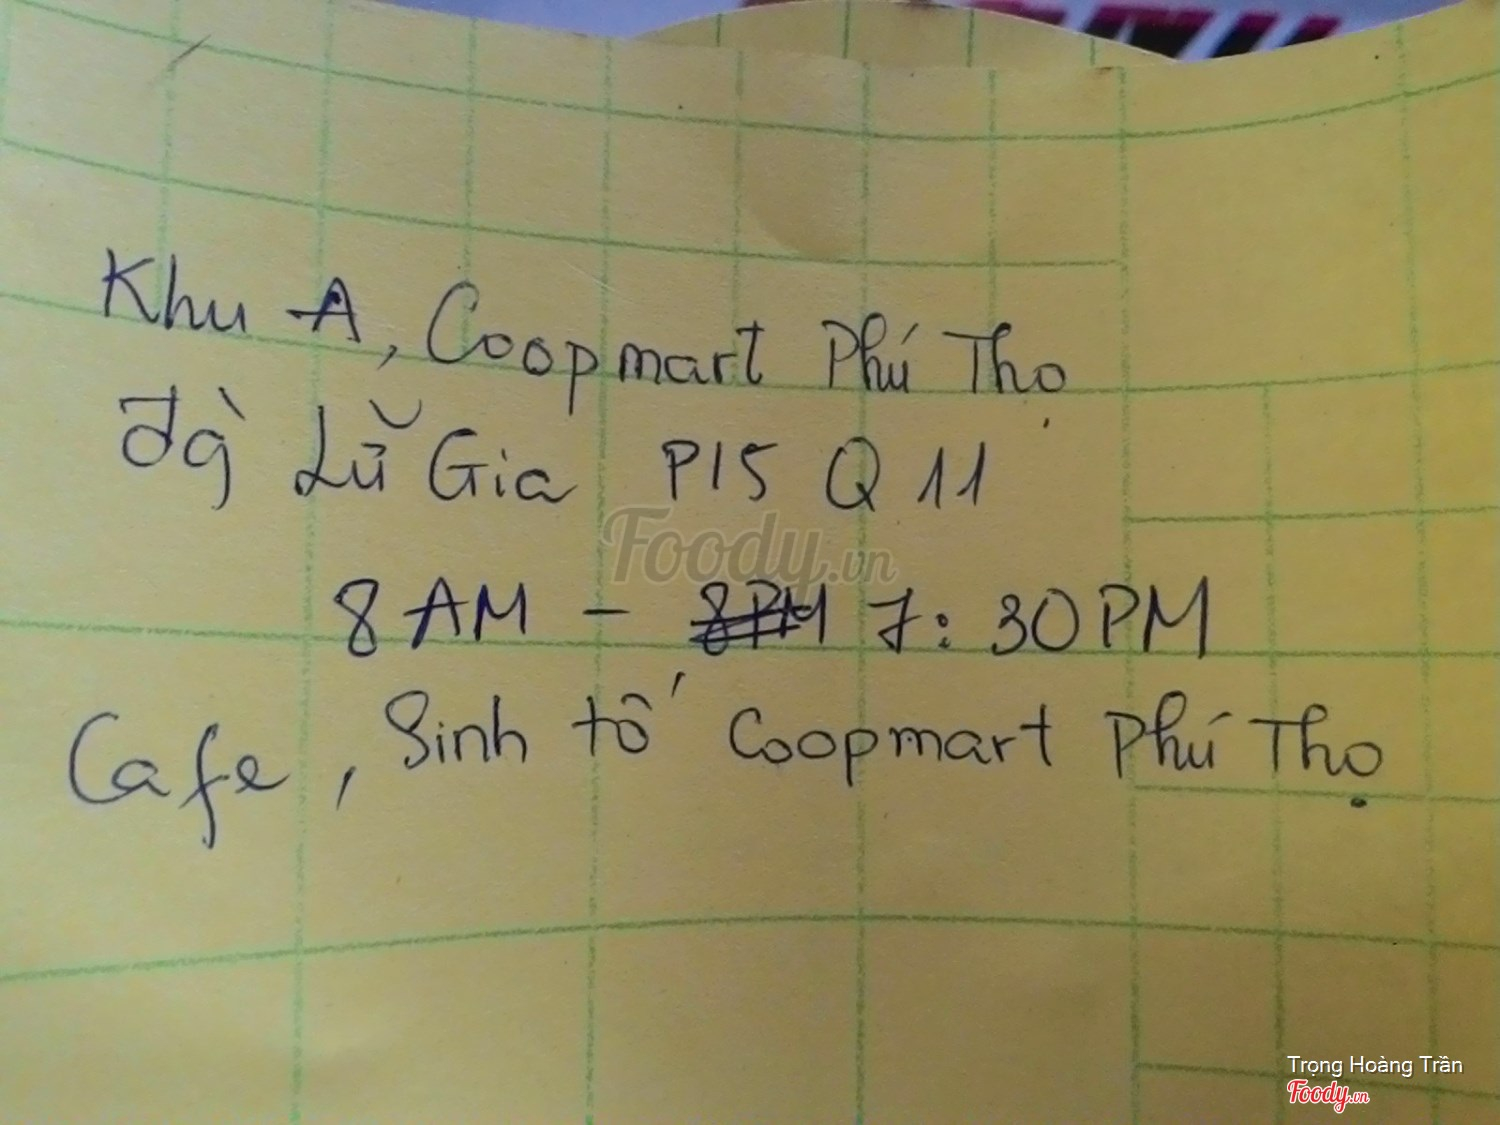 Khu A, Coopmart Phú Thọ
Lữ Gia P15 Q 11
8 AM - 8PM 7:30PM
Cafe, Sinh tố Coopmart Phú Thọ
Foody.vn
Trọng Hoàng Trần
Foody.vn